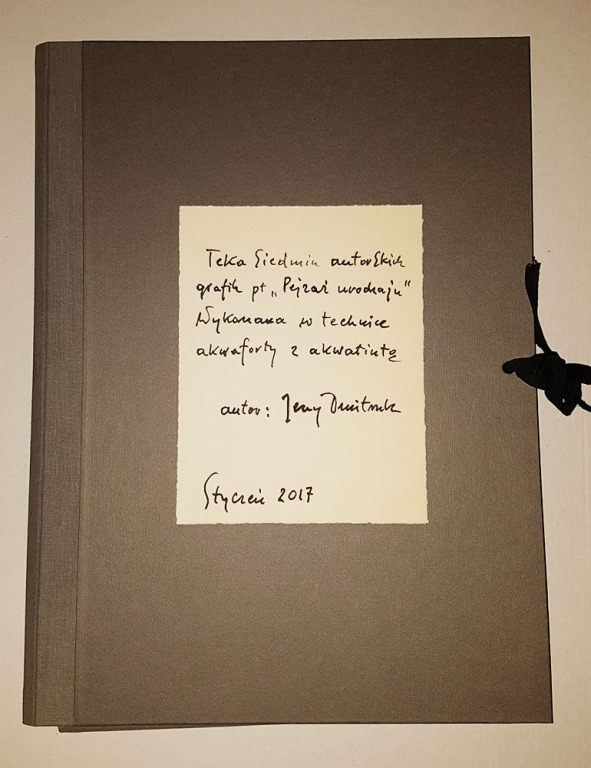 Teka siedmiu autorskich
grafik pt „Pejzaż urodzaju"
Wykonana w technice
akwaforty z akwatintą
autor: Jerzy Dmitruk
Styczeń 2017